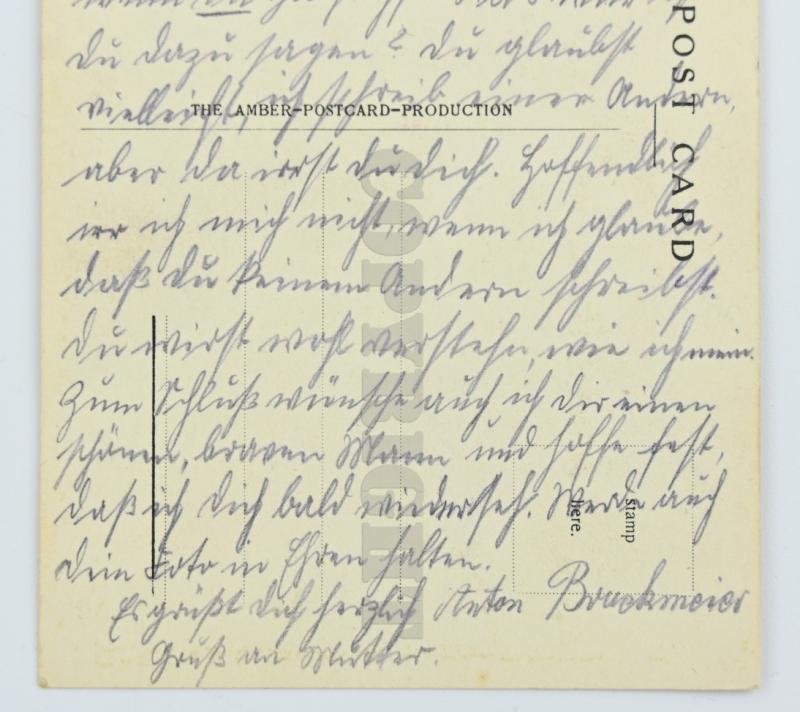 du dazu sagen? Du glaubst
vielleicht, ich schreib einer Andern,
THE AMBER-POSTCARD-PRODUCTION
aber da irrst du dich. Hoffendlich
irr ich mich nicht, wenn ich glaube,
daß du keinem Andern schreibst.
Du wirst wohl verstehn, wie ich mein.
Zum Schluß wünsche auch ich dir einen
schönen, braven Mann und hoffe fest,
daß ich dich bald wiederseh. Werde auch
dein Foto in Ehren halten.
Es grüßt dich herzlich Anton Bruckmeier
Gruß an Mutter.
POST CARD
COPYRIGHT
stamp
here.